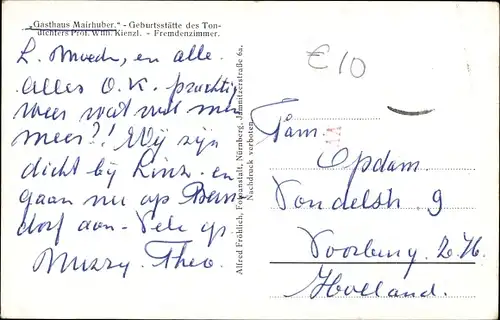 „Gasthaus Mairhuber.“ - Geburtsstätte des Ton-
dichters Prof. Wilh. Kienzl. - Fremdenzimmer.
L. Moeder, en alle.
Alles O.K. prachtig
weer wat wil men
meer?! Wij zijn
dicht bij Linz. en
gaan nu op
dorf aan. Vele gr.
Theo.
Alfred Fröhlich, Fotoanstalt, Nürnberg, Jamnitzerstraße 6a.
Nachdruck verboten.
€10
Fam.
Opdam.
Vondelstr. 9
Voorburg Z.H.
Holland.